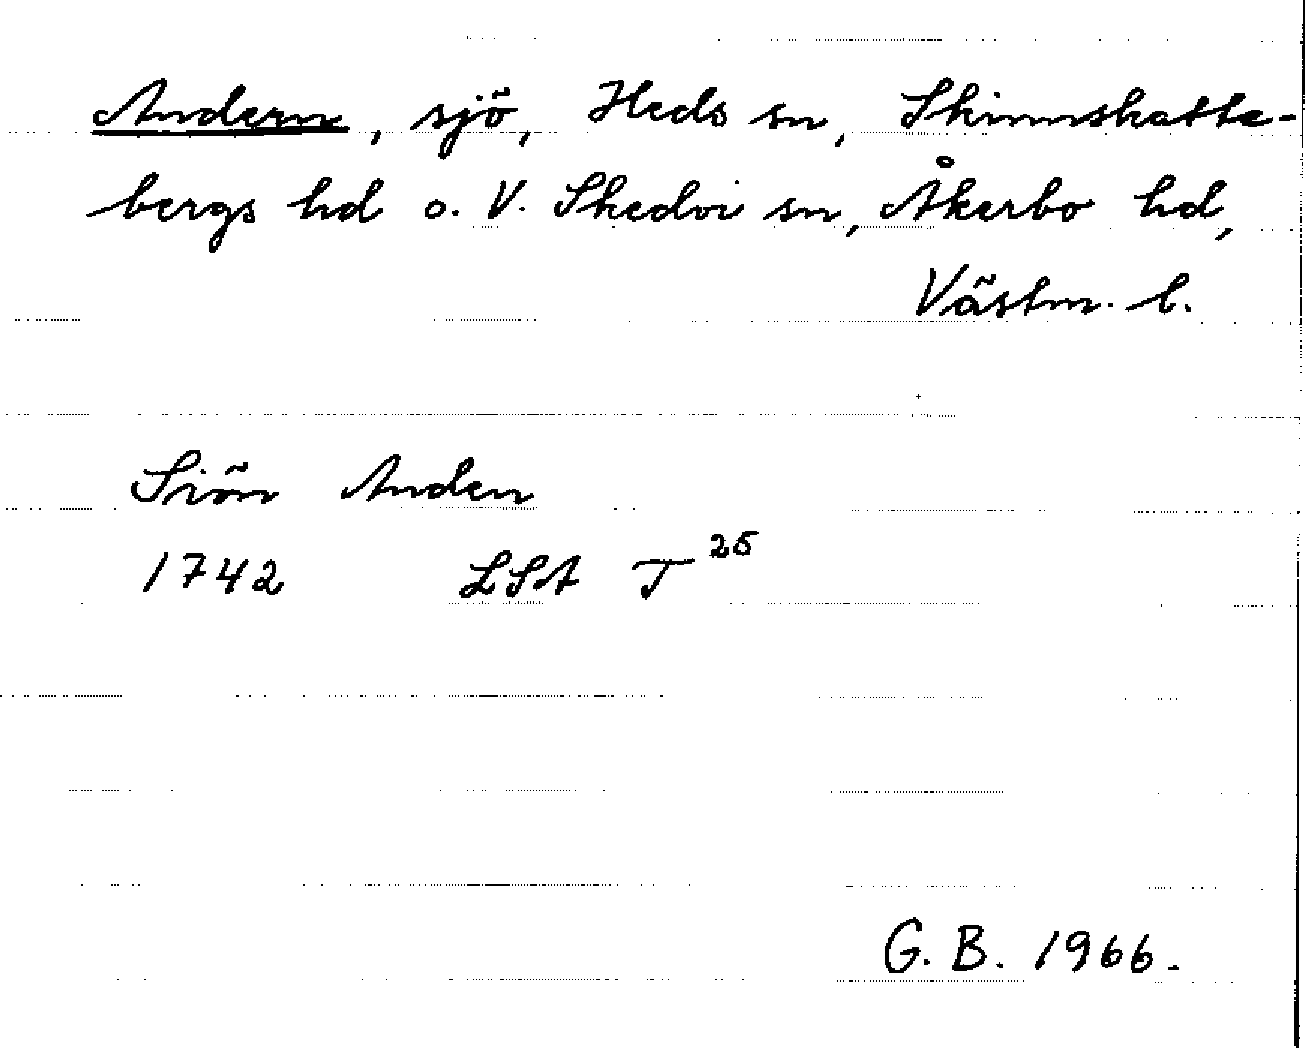 Andern, sjö, Heds sn, Skinnskatte-
bergs hd o. V. Skedvi sn, Åkerbo hd,
Västm. l.
Siön Anden
1742 LSA T 25
G. B. 1966.